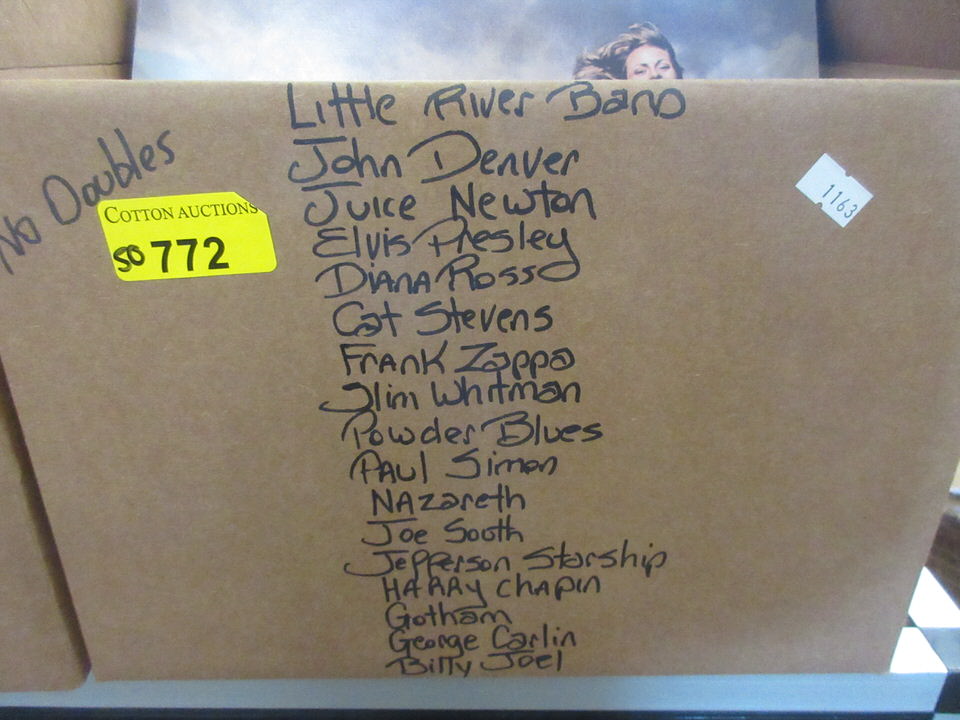 Little River Band
No Doubles
John Denver
Juice Newton
COTTON AUCTIONS
50 772
1163
Elvis Presley
Diana Ross
Cat Stevens
Frank Zappa
Slim Whitman
Powder Blues
Paul Simon
Nazareth
Joe South
Jefferson Starship
Harry Chapin
Gotham
George Carlin
Billy Joel